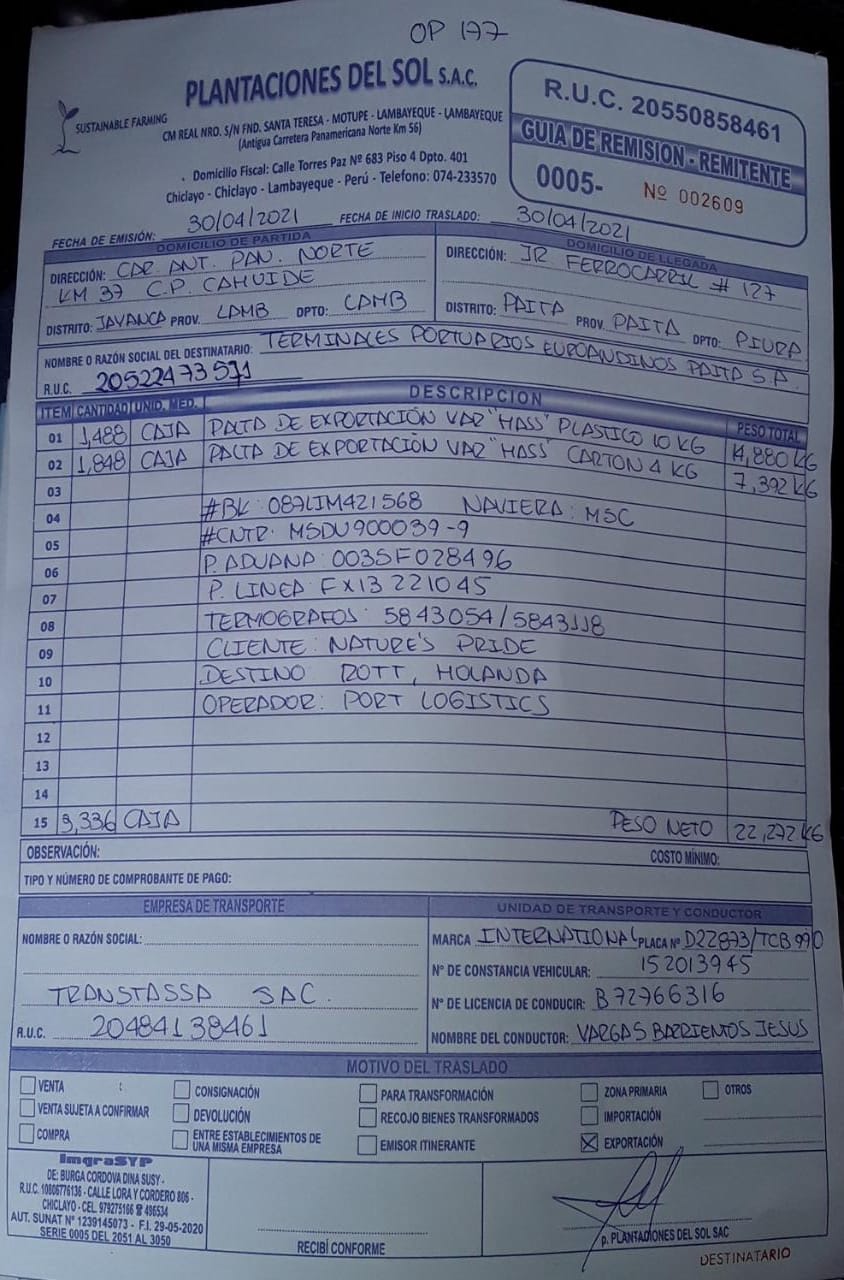 OP 177
PLANTACIONES DEL SOL S.A.C.
SUSTAINABLE FARMING
CM REAL NRO. S/N FND. SANTA TERESA - MOTUPE - LAMBAYEQUE - LAMBAYEQUE
(Antigua Carretera Panamericana Norte Km 56)
Domicilio Fiscal: Calle Torres Paz Nº 683 Piso 4 Dpto. 401
Chiclayo - Chiclayo - Lambayeque - Perú - Telefono: 074-233570
R.U.C. 20550858461
GUIA DE REMISION - REMITENTE
0005- Nº 002609
FECHA DE EMISIÓN: 30/04/2021 FECHA DE INICIO TRASLADO: 30/04/2021
DOMICILIO DE PARTIDA
DIRECCIÓN: CAR. ANT. PAN. NORTE
KM 37 C.P. CAHUIDE
DISTRITO: JAYANCA PROV. LAMB DPTO: LAMB
DOMICILIO DE LLEGADA
DIRECCIÓN: JR FERROCARRIL # 127
DISTRITO: PAITA PROV. PAITA DPTO: PIURA
NOMBRE O RAZÓN SOCIAL DEL DESTINATARIO: TERMINALES PORTUARIOS EUROANDINOS PAITA S.A.
R.U.C. 20522473571
ITEM CANTIDAD UNID. MED. DESCRIPCION PESO TOTAL
01 1,488 CAJA PALTA DE EXPORTACIÓN VAR "HASS" PLASTICO 10 KG 14,880 KG
02 1,848 CAJA PALTA DE EXPORTACIÓN VAR "HASS" CARTON 4 KG 7,392 KG
03
04 #BK: 087LIM421568 NAVIERA: MSC
05 #CNTR: MSDU900039-9
06 P. ADUANA: 0035F028496
07 P. LINEA: FX13221045
08 TERMOGRAFOS: 5843054/5843118
09 CLIENTE: NATURE'S PRIDE
10 DESTINO ROTT, HOLANDA
11 OPERADOR: PORT LOGISTICS
12
13
14
15 3,336 CAJA PESO NETO 22,272 KG
OBSERVACIÓN: COSTO MÍNIMO:
TIPO Y NÚMERO DE COMPROBANTE DE PAGO:
EMPRESA DE TRANSPORTE
NOMBRE O RAZÓN SOCIAL:
TRANSTASSA SAC.
R.U.C. 20484138461
UNIDAD DE TRANSPORTE Y CONDUCTOR
MARCA INTERNATIONAL PLACA Nº D2Z873/TCB990
N° DE CONSTANCIA VEHICULAR: 152013945
N° DE LICENCIA DE CONDUCIR: B72766316
NOMBRE DEL CONDUCTOR: VARGAS BARRIENTOS JESUS
MOTIVO DEL TRASLADO
VENTA CONSIGNACIÓN PARA TRANSFORMACIÓN ZONA PRIMARIA OTROS
VENTA SUJETA A CONFIRMAR DEVOLUCIÓN RECOJO BIENES TRANSFORMADOS IMPORTACIÓN
COMPRA ENTRE ESTABLECIMIENTOS DE UNA MISMA EMPRESA EMISOR ITINERANTE EXPORTACIÓN
ImgraSYP
DE: BURGA CORDOVA DINA SUSY -
R.U.C. 10806776136 - CALLE LORA Y CORDERO 806 -
CHICLAYO - CEL. 979275166 ☎ 496534
AUT. SUNAT Nº 1239145073 - F.I. 29-05-2020
SERIE 0005 DEL 2051 AL 3050
RECIBÍ CONFORME
p. PLANTACIONES DEL SOL SAC
DESTINATARIO